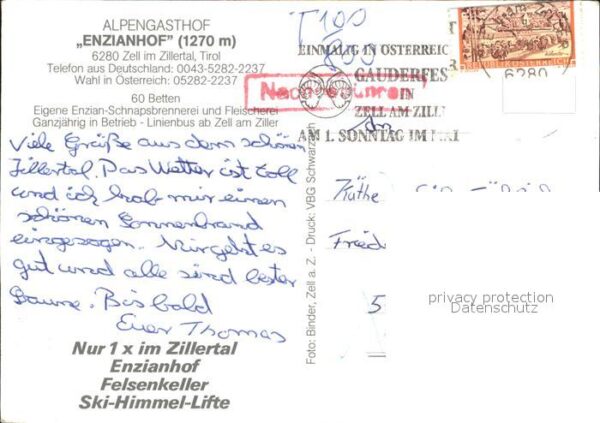 ALPENGASTHOF
„ENZIANHOF" (1270 m)
6280 Zell im Zillertal, Tirol
Telefon aus Deutschland: 0043-5282-2237
Wahl in Österreich: 05282-2237
60 Betten
Eigene Enzian-Schnapsbrennerei und Fleischerei
Ganzjährig in Betrieb - Linienbus ab Zell am Ziller
Viele Grüße aus dem schönen
Zillertal. Das Wetter ist toll
und ich hab mir einen
schönen Sonnenbrand
eingezogen. Mir geht es
gut und alle sind bester
Laune. Bis bald
Euer Thomas
Nur 1 x im Zillertal
Enzianhof
Felsenkeller
Ski-Himmel-Lifte
Foto: Binder, Zell a. Z. - Druck: VBG Schwarzach
T 100
EINMALIG IN ÖSTERREICH
GAUDERFEST
IN
ZELL AM ZILLER
AM 1. SONNTAG IM MAI
6280
REPUBLIK ÖSTERREICH
An
Käthe
Fried
5
privacy protection
Datenschutz